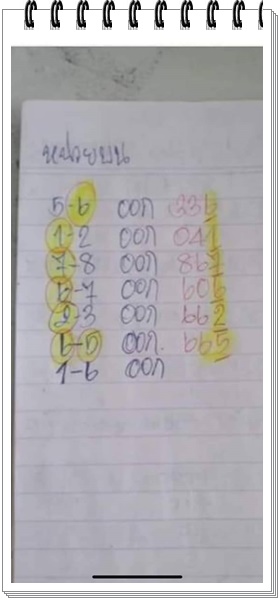 หน่วยบน
5-6 ออก 336
1-2 ออก 041
7-8 ออก 867
6-7 ออก 606
2-3 ออก 662
6-5 ออก. 665
1-6 ออก